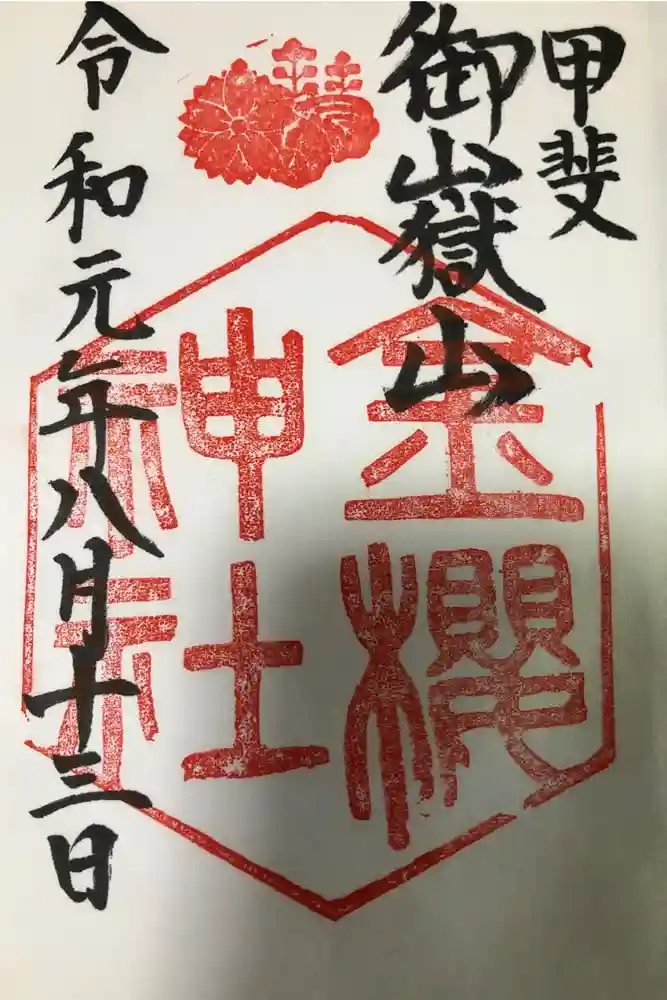 甲斐
御嶽山
金櫻
神社
令和元年八月十三日